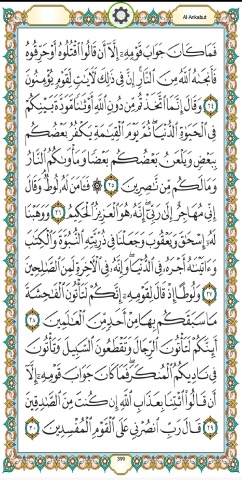 Al Ankabut
فَمَا كَانَ جَوَابَ قَوْمِهِ إِلَّا أَن قَالُوا اقْتُلُوهُ أَوْ حَرِّقُوهُ
فَأَنجَاهُ اللَّهُ مِنَ النَّارِ إِنَّ فِي ذَٰلِكَ لَآيَاتٍ لِّقَوْمٍ يُؤْمِنُونَ
٢٤ وَقَالَ إِنَّمَا اتَّخَذْتُم مِّن دُونِ اللَّهِ أَوْثَانًا مَّوَدَّةَ بَيْنِكُمْ
فِي الْحَيَاةِ الدُّنْيَا ثُمَّ يَوْمَ الْقِيَامَةِ يَكْفُرُ بَعْضُكُم
بِبَعْضٍ وَيَلْعَنُ بَعْضُكُم بَعْضًا وَمَأْوَاكُمُ النَّارُ
وَمَا لَكُم مِّن نَّاصِرِينَ ٢٥ ۞ فَآمَنَ لَهُ لُوطٌ وَقَالَ
إِنِّي مُهَاجِرٌ إِلَىٰ رَبِّي إِنَّهُ هُوَ الْعَزِيزُ الْحَكِيمُ ٢٦ وَوَهَبْنَا
لَهُ إِسْحَاقَ وَيَعْقُوبَ وَجَعَلْنَا فِي ذُرِّيَّتِهِ النُّبُوَّةَ وَالْكِتَابَ
وَآتَيْنَاهُ أَجْرَهُ فِي الدُّنْيَا وَإِنَّهُ فِي الْآخِرَةِ لَمِنَ الصَّالِحِينَ
٢٧ وَلُوطًا إِذْ قَالَ لِقَوْمِهِ إِنَّكُمْ لَتَأْتُونَ الْفَاحِشَةَ
مَا سَبَقَكُم بِهَا مِنْ أَحَدٍ مِّنَ الْعَالَمِينَ ٢٨
أَئِنَّكُمْ لَتَأْتُونَ الرِّجَالَ وَتَقْطَعُونَ السَّبِيلَ وَتَأْتُونَ
فِي نَادِيكُمُ الْمُنكَرَ فَمَا كَانَ جَوَابَ قَوْمِهِ إِلَّا
أَن قَالُوا ائْتِنَا بِعَذَابِ اللَّهِ إِن كُنتَ مِنَ الصَّادِقِينَ
٢٩ قَالَ رَبِّ انصُرْنِي عَلَى الْقَوْمِ الْمُفْسِدِينَ ٣٠
399